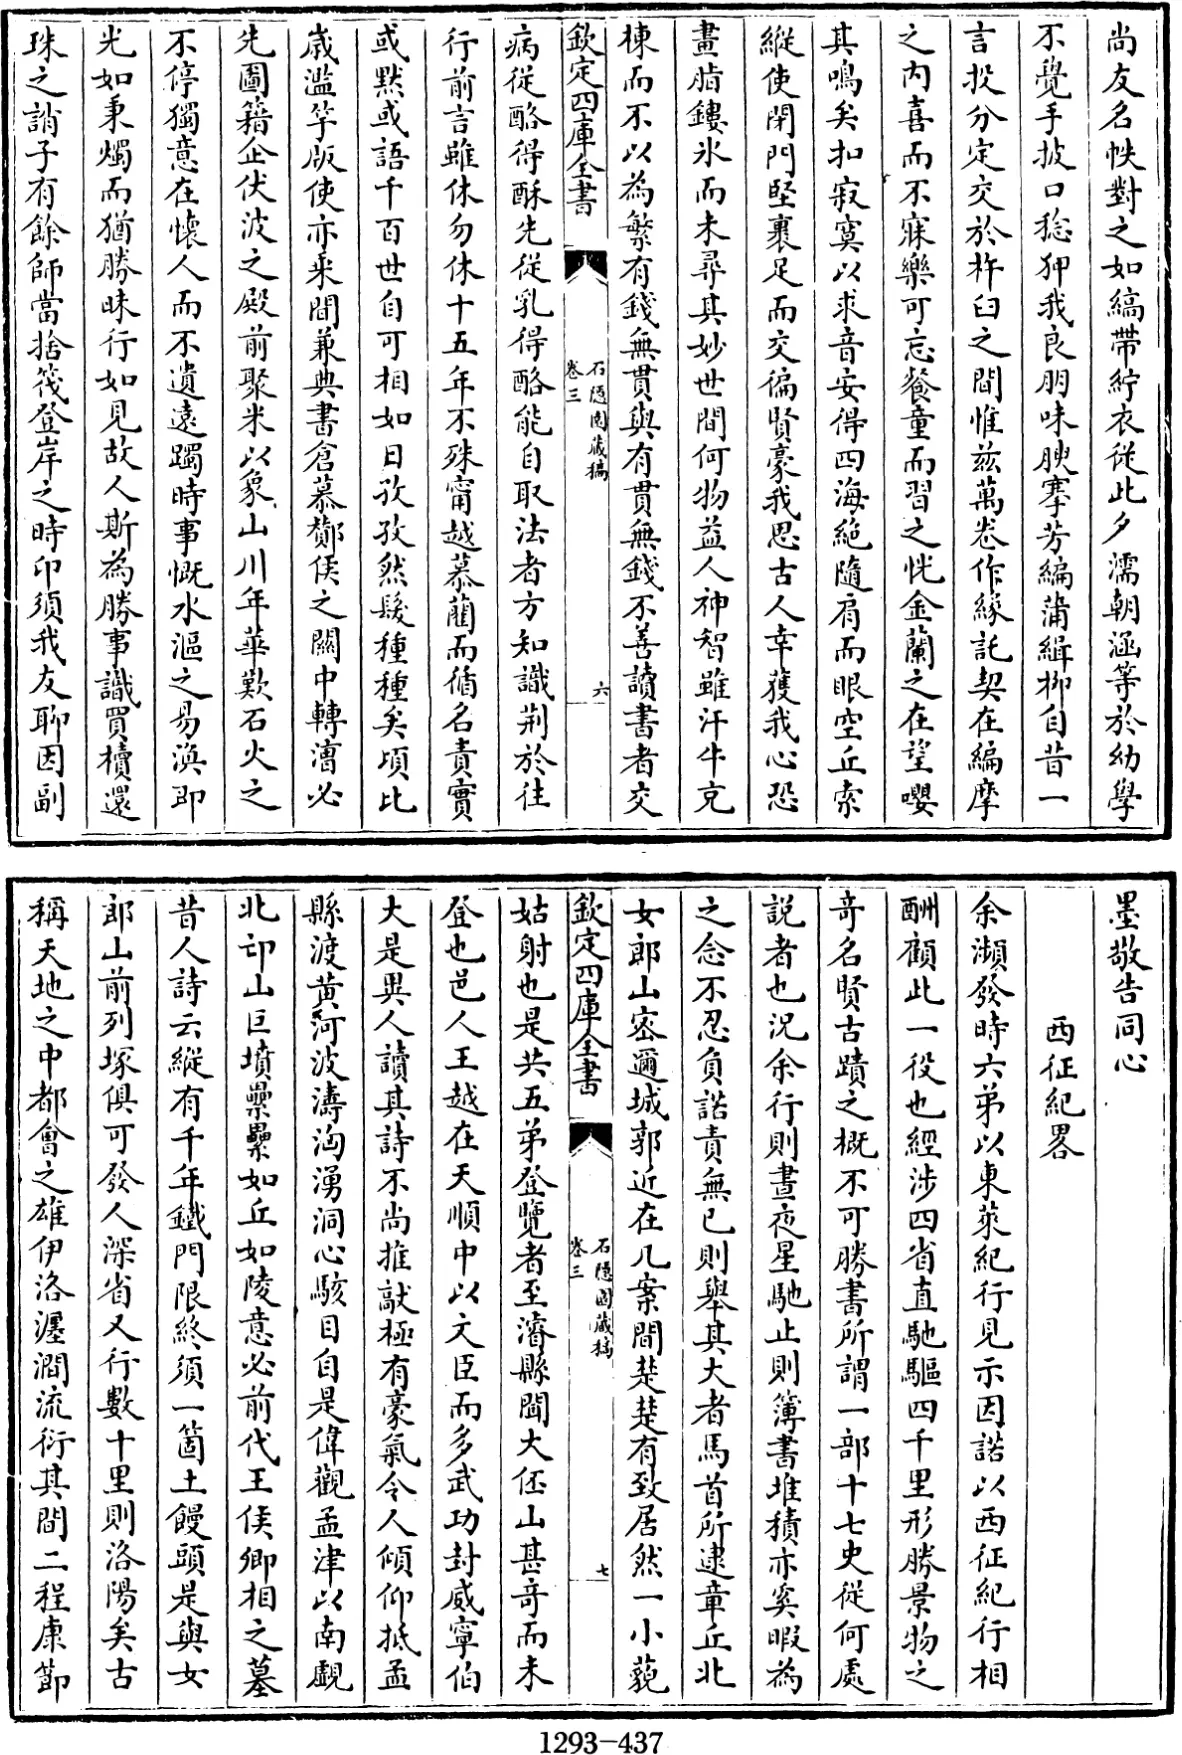 尚友名帙對之如縞帶紵衣從此夕濡朝涵等於幼學
不覺手披口稔狎我良朋味腴搴芳編蒲緝柳自昔一
言投分定交於杵臼之間惟兹萬卷作緣託契在編摩
之内喜而不寐樂可忘餐童而習之恍金蘭之在望嚶
其鳴矣扣寂寞以求音安得四海絶隨肩而眼空丘索
縱使閉門堅裹足而交徧賢豪我思古人幸獲我心恐
畫脂鏤氷而未尋其妙世間何物益人神智雖汗牛充
棟而不以為繁有錢無貫與有貫無錢不善讀書者交
欽定四庫全書
石隱園藏稿
卷三
六
病從酪得酥先從乳得酪能自取法者方知識荆於往
行前言雖休勿休十五年不殊甯越慕藺而循名責實
或黙或語千百世自可相如日孜孜然髮種種矣頃比
嵗濫竽版使亦乘間兼典書倉慕酇侯之關中轉漕必
先圖籍企伏波之殿前聚米以象山川年華歎石火之
不停獨意在懷人而不遺遠躅時事慨水漚之易渙即
光如秉燭而猶勝昧行如見故人斯為勝事識買櫝還
珠之誚子有餘師當捨筏登岸之時卬須我友聊因副
墨敬告同心
西征紀畧
余瀕發時六弟以東萊紀行見示因諾以西征紀行相
酬顧此一役也經涉四省直馳驅四千里形勝景物之
奇名賢古蹟之概不可勝書所謂一部十七史從何處
説者也況余行則晝夜星馳止則簿書堆積亦奚暇為
之念不忍負諾責無已則舉其大者馬首所逮章丘北
女郎山密邇城郭近在几案間楚楚有致居然一小藐
欽定四庫全書
石隱園藏稿
卷三
七
姑射也是共五弟登覽者至濬縣聞大伾山甚奇而未
登也邑人王越在天順中以文臣而多武功封威寧伯
大是異人讀其詩不尚推敲極有豪氣令人傾仰抵孟
縣渡黄河波濤洶湧洞心駭目自是偉觀孟津以南覼
北邙山巨墳纍纍如丘如陵意必前代王侯卿相之墓
昔人詩云縱有千年鐵門限終須一箇土饅頭是與女
郎山前列塚俱可發人深省又行數十里則洛陽矣古
稱天地之中都會之雄伊洛瀍澗流衍其間二程康節
1293-437